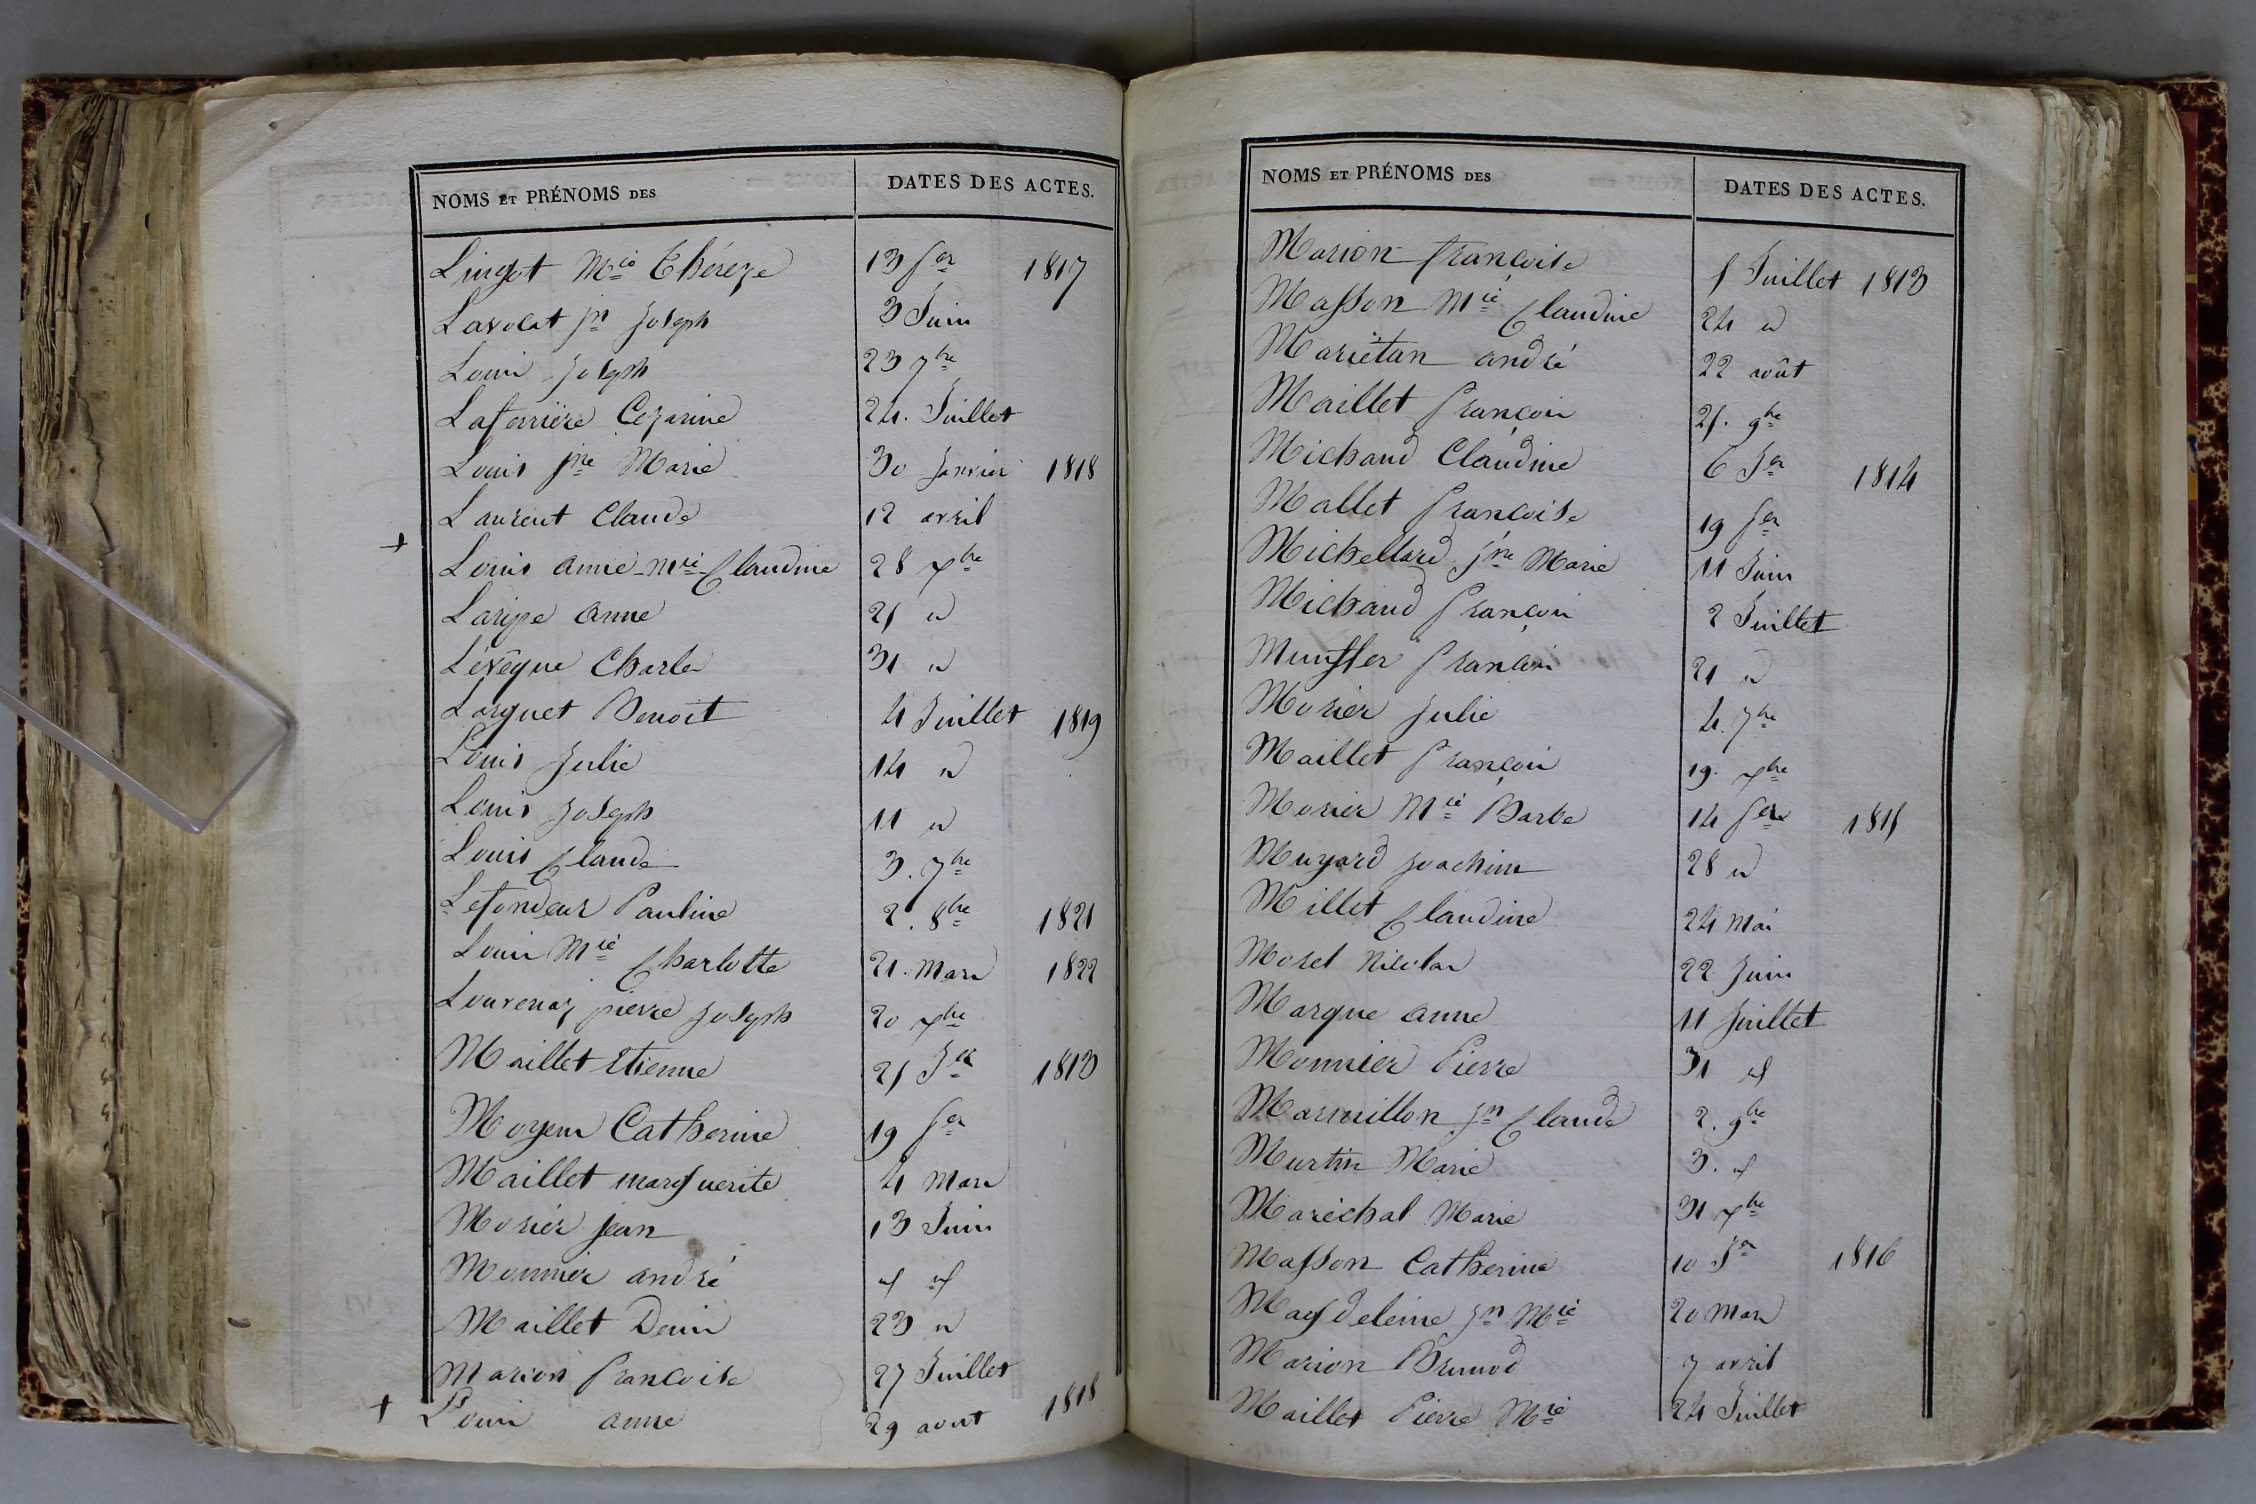 NOMS ET PRÉNOMS DES DATES DES ACTES.
Lingot Mie Thérèze 13 fer 1817
Lavocat jn Joseph 3 Juin
Louis Joseph 23 7bre
Laferrière Cezarine 24. Juillet
Louis jne Marie 30 Janvier 1818
Laurent Claude 12 avril
+
Louis anne-Mie-Claudine 28 xbre
Laripe anne 25 "
Lévêque Charles 31 "
Lorguet Benoit 4 Juillet 1819
Louis Julie 14 "
Louis Joseph 11 "
Louis Claude 3. 7bre
Lefondeur Pauline 2. 8bre 1821
Louis Mie Charlotte 21. Mars 1822
Louvenaz pierre Joseph 20 xbre
Maillet Etienne 25 Jer 1813
Moyem Catherine 19 fer
Maillet marguerite 4 Mars
Mosiér jean 13 Juin
Monnier andré " "
Maillet Denis 23 "
Marion françoise 27 Juillet
+ Louis anne 29 aout 1818
NOMS ET PRÉNOMS DES DATES DES ACTES.
Marion françoise 5 Juillet 1813
Masson Mie Claudine 24 "
Mariétan andré 22 août
Maillet françois 25. 9bre
Michaud Claudine 6 Jer 1814
Mallet françoise 19 fer
Michellard jne Marie 11 Juin
Michaud françois 2 Juillet
françois 21 "
Mosier Julie 4. 7bre
Maillet françois 19. xbre
Mosier Mie Barbe 14 fer 1815
Muyard Joachim 28 "
Millet Claudine 24 Mai
Morel Nicolas 22 Juin
Marque anne 11 Juillet
Monnier Pierre 31 "
Marmillon jn Claude 2. 9bre
Murtin Marie 3. "
Maréchal Marie 31 xbre
Masson Catherine 10 Jer 1816
Magdeleine jn Mie 20 Mars
Marion Brunod 7 avril
Maillet Pierre Mie 24 Juillet